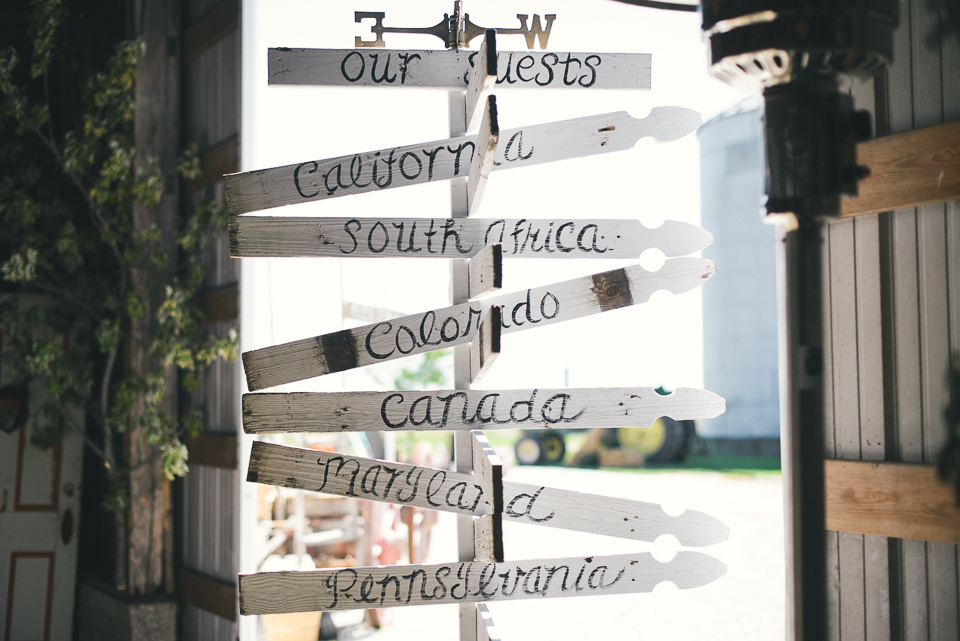 E W
Our Guests
California
South Africa
Colorado
Canada
Maryland
Pennsylvania